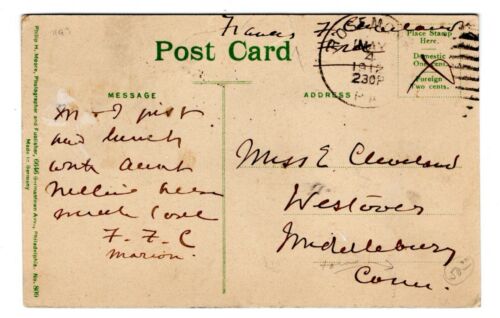 Frances F. Cleveland
Free
Post Card
ROSEM
MAY
4
1912
230P
PA
Place Stamp
Here.
Domestic
One cent.
Foreign
Two cents.
MESSAGE
ADDRESS
M & I just
had lunch
with Aunt
Nellie here
much love
F. F. C
Marion.
Miss E. Cleveland
Westover
Middlebury
Conn.
Philip H. Moore, Photographer and Publisher, Germantown Ave., Philadelphia. No.
Made in Germany